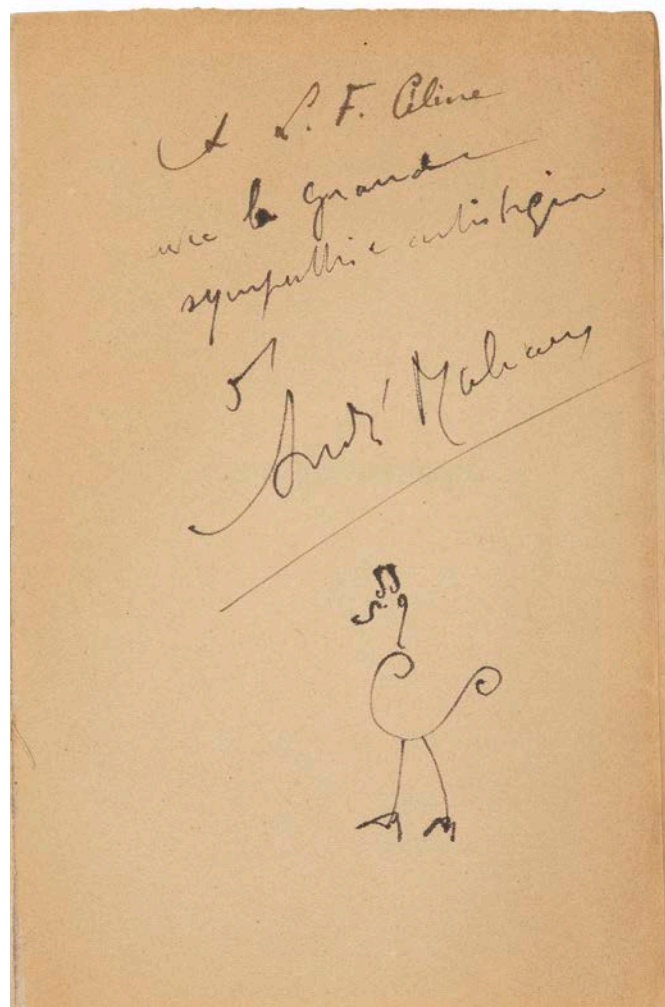 A L. F. Céline
avec la grande
sympathie artistique
d'
André Malraux